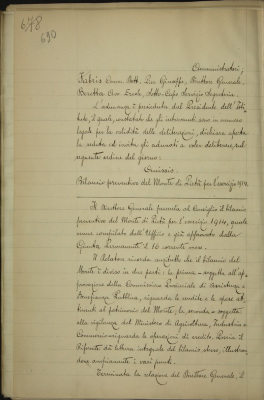 678
690
Amministratori,
Fabris Comm. Dott. Pier Giuseppe, Direttore Generale,
Beretta Cav. Ercole, Sotto Capo Servizio Segreteria.
L'adunanza è presieduta dal Presidente dell'Isti-
tuto, il quale, constatato che gli intervenuti sono in numero
legale per la validità delle deliberazioni, dichiara aperta
la seduta ed invita gli adunati a voler deliberare, sul
seguente ordine del giorno:
Omissis
Bilancio preventivo del Monte di Pietà per l'esercizio 1914.
Il Direttore Generale presenta al Consiglio il bilancio
preventivo del Monte di Pietà per l'esercizio 1914, quale
venne compilato dall'Ufficio e già approvato dalla
Giunta Permanente il 16 corrente mese.
Il Relatore ricorda anzitutto che il bilancio del
Monte è diviso in due parti: la prima soggetta all'ap-
provazione della Commissione Provinciale di Assistenza e
Beneficenza Pubblica, riguarda le rendite e le spese at-
tinenti al patrimonio del Monte; la seconda soggetta
alla vigilanza del Ministero di Agricoltura, Industria e
Commercio riguarda le operazioni di credito. Poscia il
Riferente dà lettura integrale del bilancio stesso, illustran-
done ampiamente i vari punti.
Terminata la relazione del Direttore Generale, il